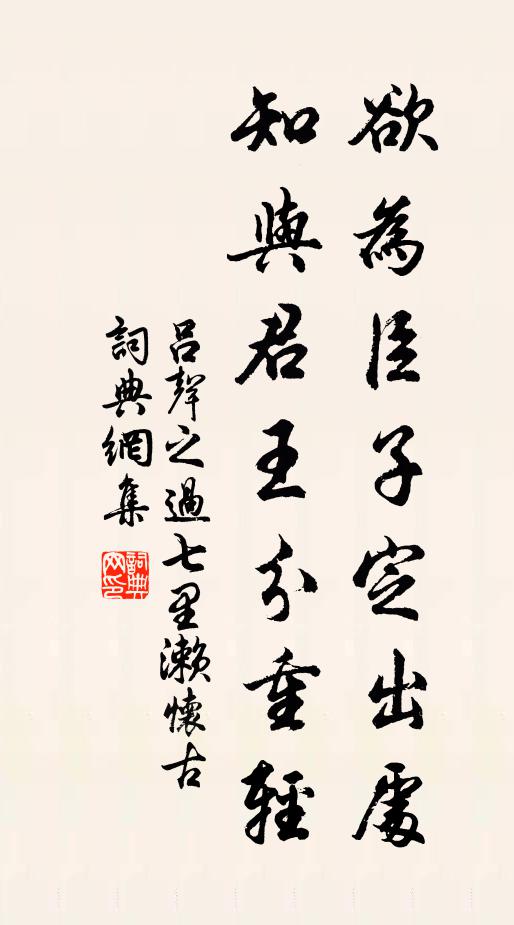 欲為臣子定出處
知與君王分重輕
呂聲之過七里瀨懷古
詞典網集
詞典網印